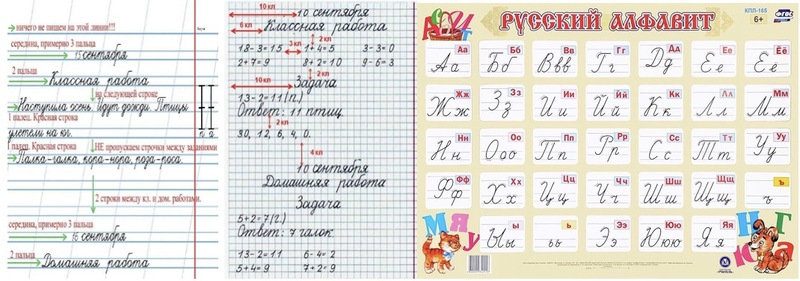 ничего не пишем на этой линии!!!
середина, примерно 3 пальца
15 сентября
2 пальца
Классная работа
на следующей строке
Наступила осень. Идут дожди. Птицы
1 палец. Красная строка
улетели на юг.
1 палец. Красная строка НЕ пропускаем строчки между заданиями
Палка-галка, кора-нора, роза-роса.
2 строки между кл. и дом. работами.
середина, примерно 3 пальца
16 сентября
2 пальца
Домашняя работа
10 кл 10 сентября
6 кл Классная работа
2 кл
18-3=15 3 кл 1+4=5 3-3=0
2+7=9 8+2=10 9-6=3
2 кл
10 кл Задача
13-2=11(п.)
Ответ: 11 птиц.
2 кл
30, 12, 6, 4, 0.
4 кл
10 сентября
Домашняя работа
Задача
5+2=7(г.)
Ответ: 7 галок.
13-2=11 6-4=2
5+4=9 7+2=9
КПЛ-165
6+
РУССКИЙ АЛФАВИТ
Аа Бб Вв Гг Дд Ее Ёё
Аа Бб Ввв Гг Дд Ее Ёё
Жж Зз Ии Йй Кк Лл Мм
Жж Зз Ии Йй Кк Лл Мм
Нн Оо Пп Рр Сс Тт Уу
Нн Ооо Пп Рр Сс Тт Уу
Фф Хх Цц Чч Шш Щщ ъ
Фф Хх Цц Чч Шш Щщ ъ
Ы ы ь Ээ Юю Яя
Ы ы ьь Ээ Ююю Яя
М Я У
Н Г Ю а